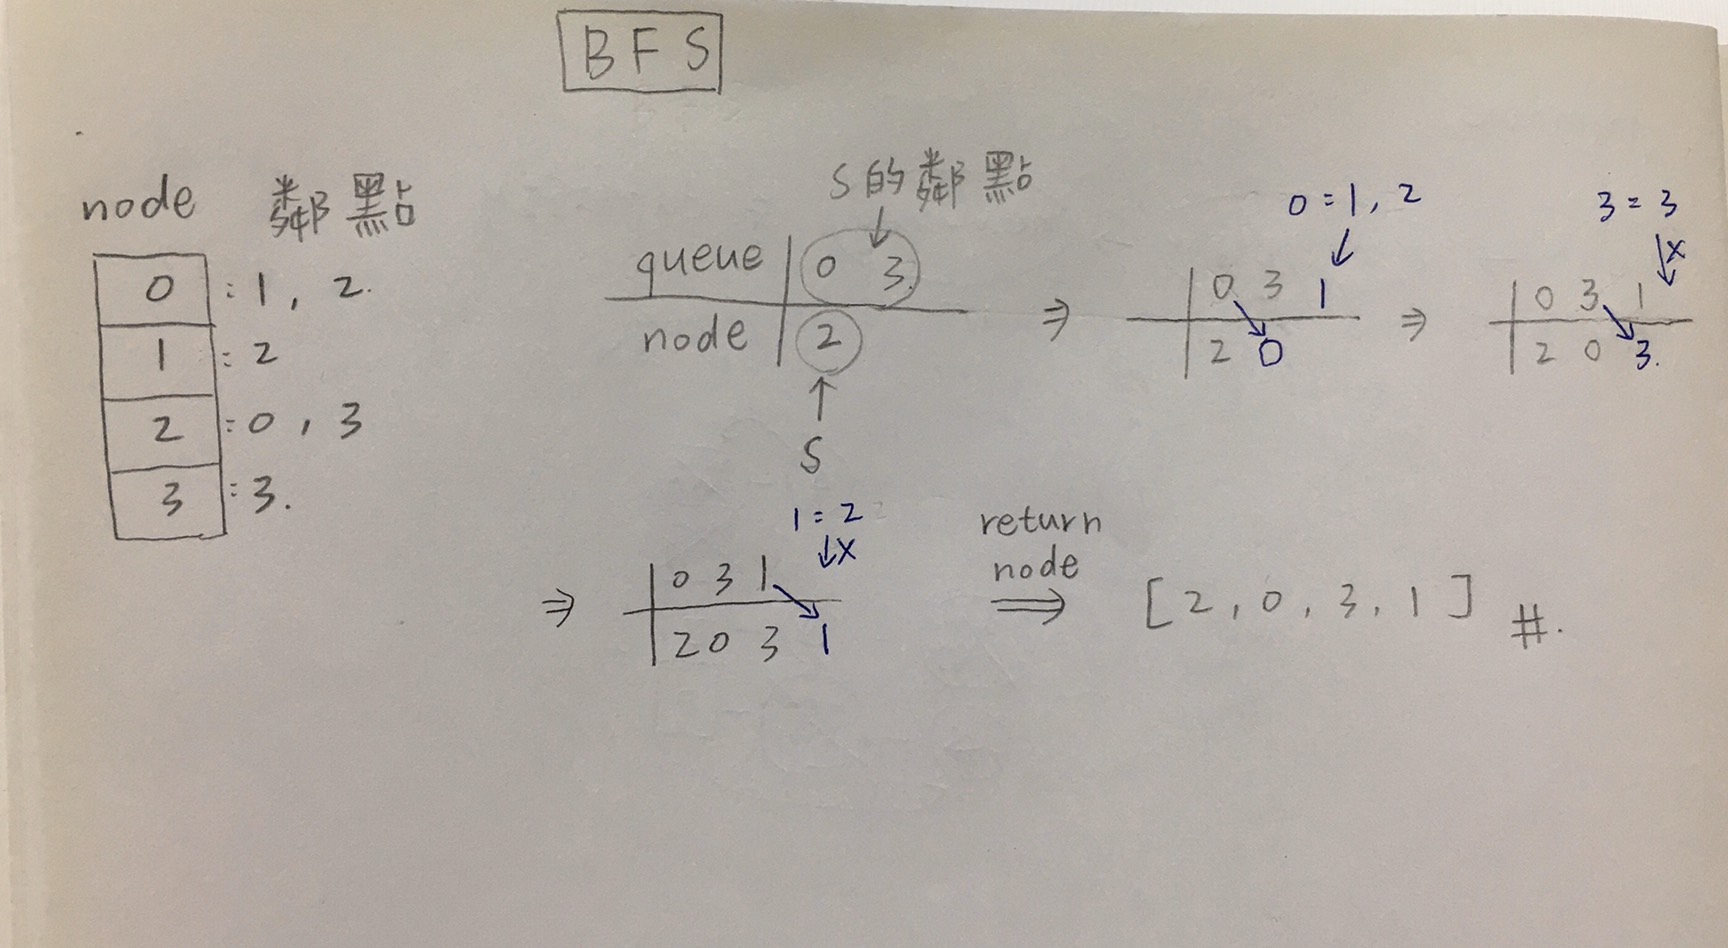 BFS
node 鄰點
0 : 1, 2.
1 : 2
2 : 0, 3
3 : 3.
S的鄰點
↓
queue | 0 3.
node | 2
↑
S
0 = 1, 2
↓
⇒ 0 3 1
2 0
3 = 3
↓x
⇒ 0 3 1
2 0 3.
1 = 2
↓x
⇒ 0 3 1
2 0 3 1
return
node
⇒ [2, 0, 3, 1] #.